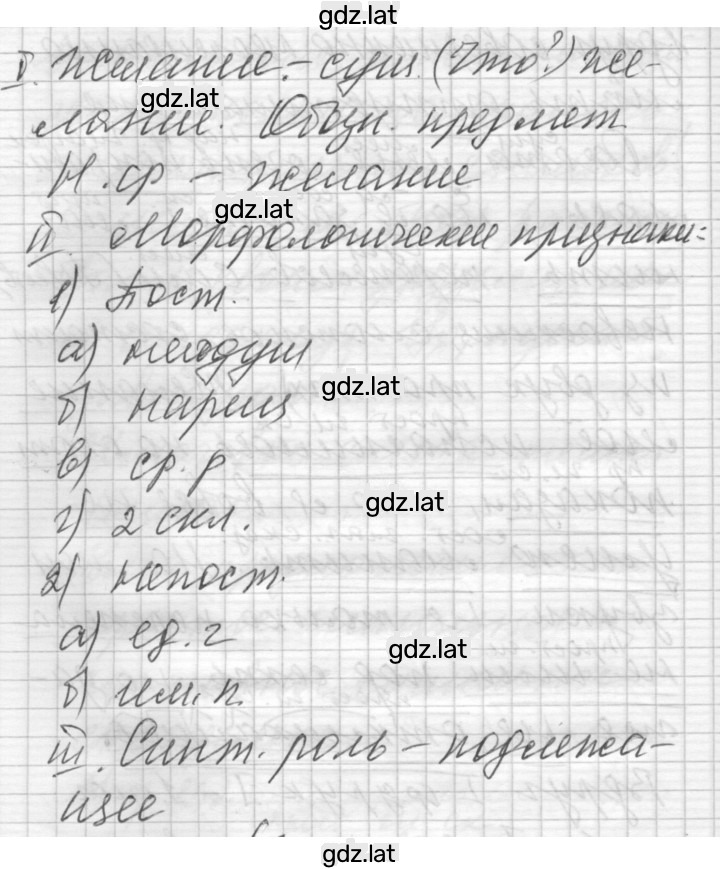 gdz.lat
I. Желание. – сущ. (Что?) же-
gdz.lat
лание. Обозн. предмет
Н. ф – желание
gdz.lat
II. Морфологические признаки:
1) Пост.
а) неодуш
gdz.lat
б) нариц
в) ср. р
gdz.lat
г) 2 скл.
2) Непост.
а) ед. ч
gdz.lat
б) им. п.
III. Синт. роль – подлежа-
щее
gdz.lat